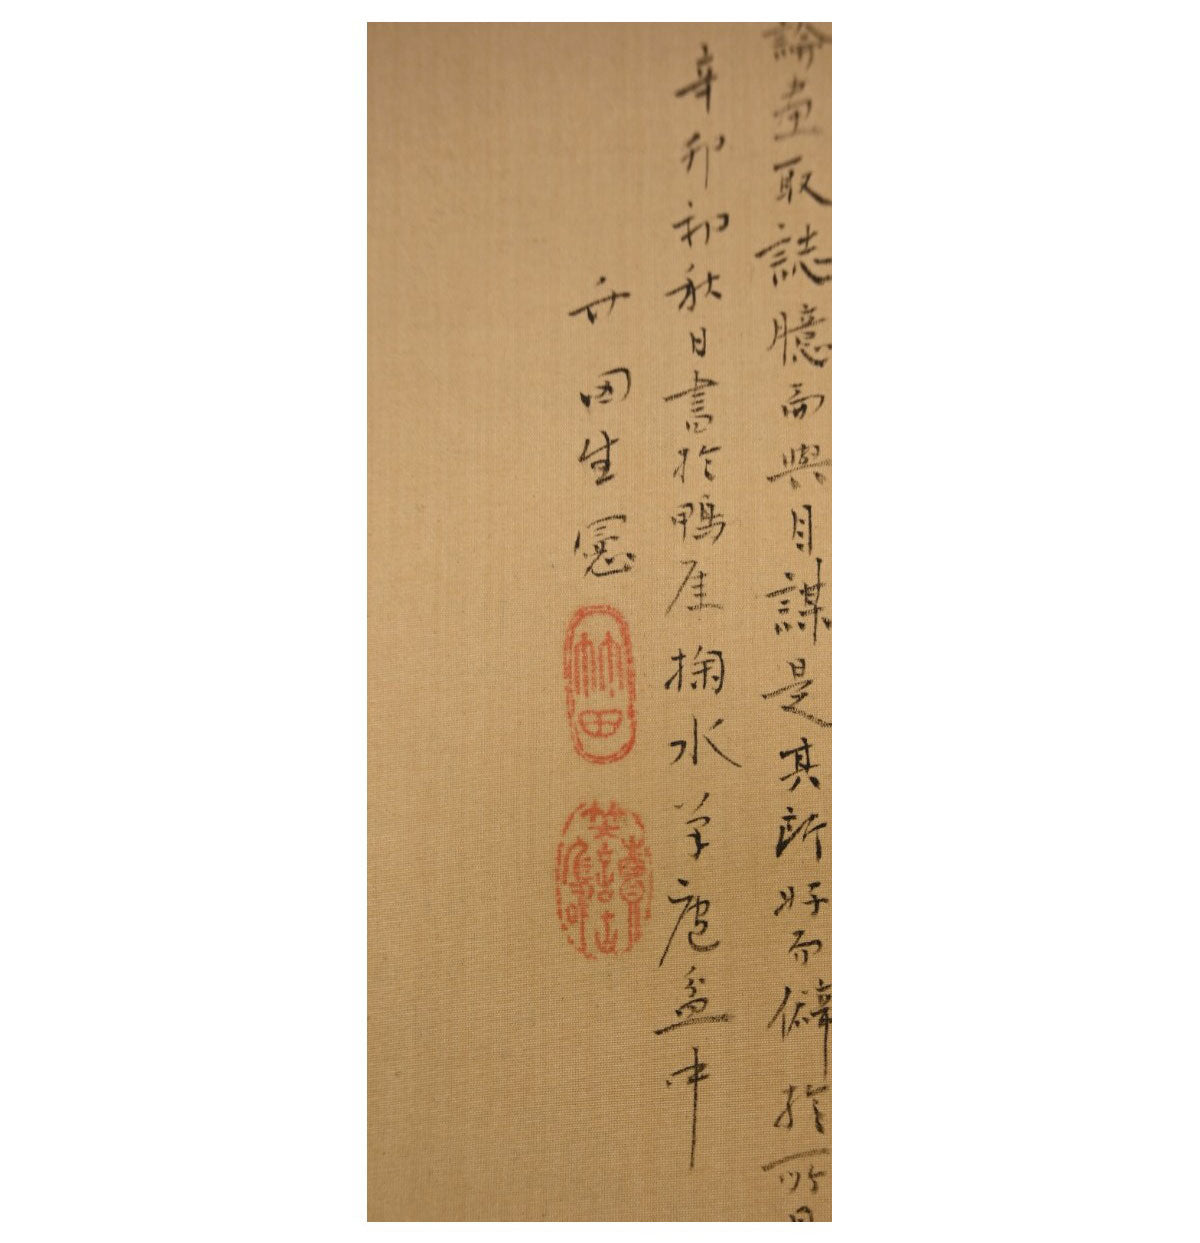 論畫取誌臆而與目謀是其所好而僻於所目
辛卯初秋日書於鴨厓掬水草廬盆中
竹田生憲
竹田